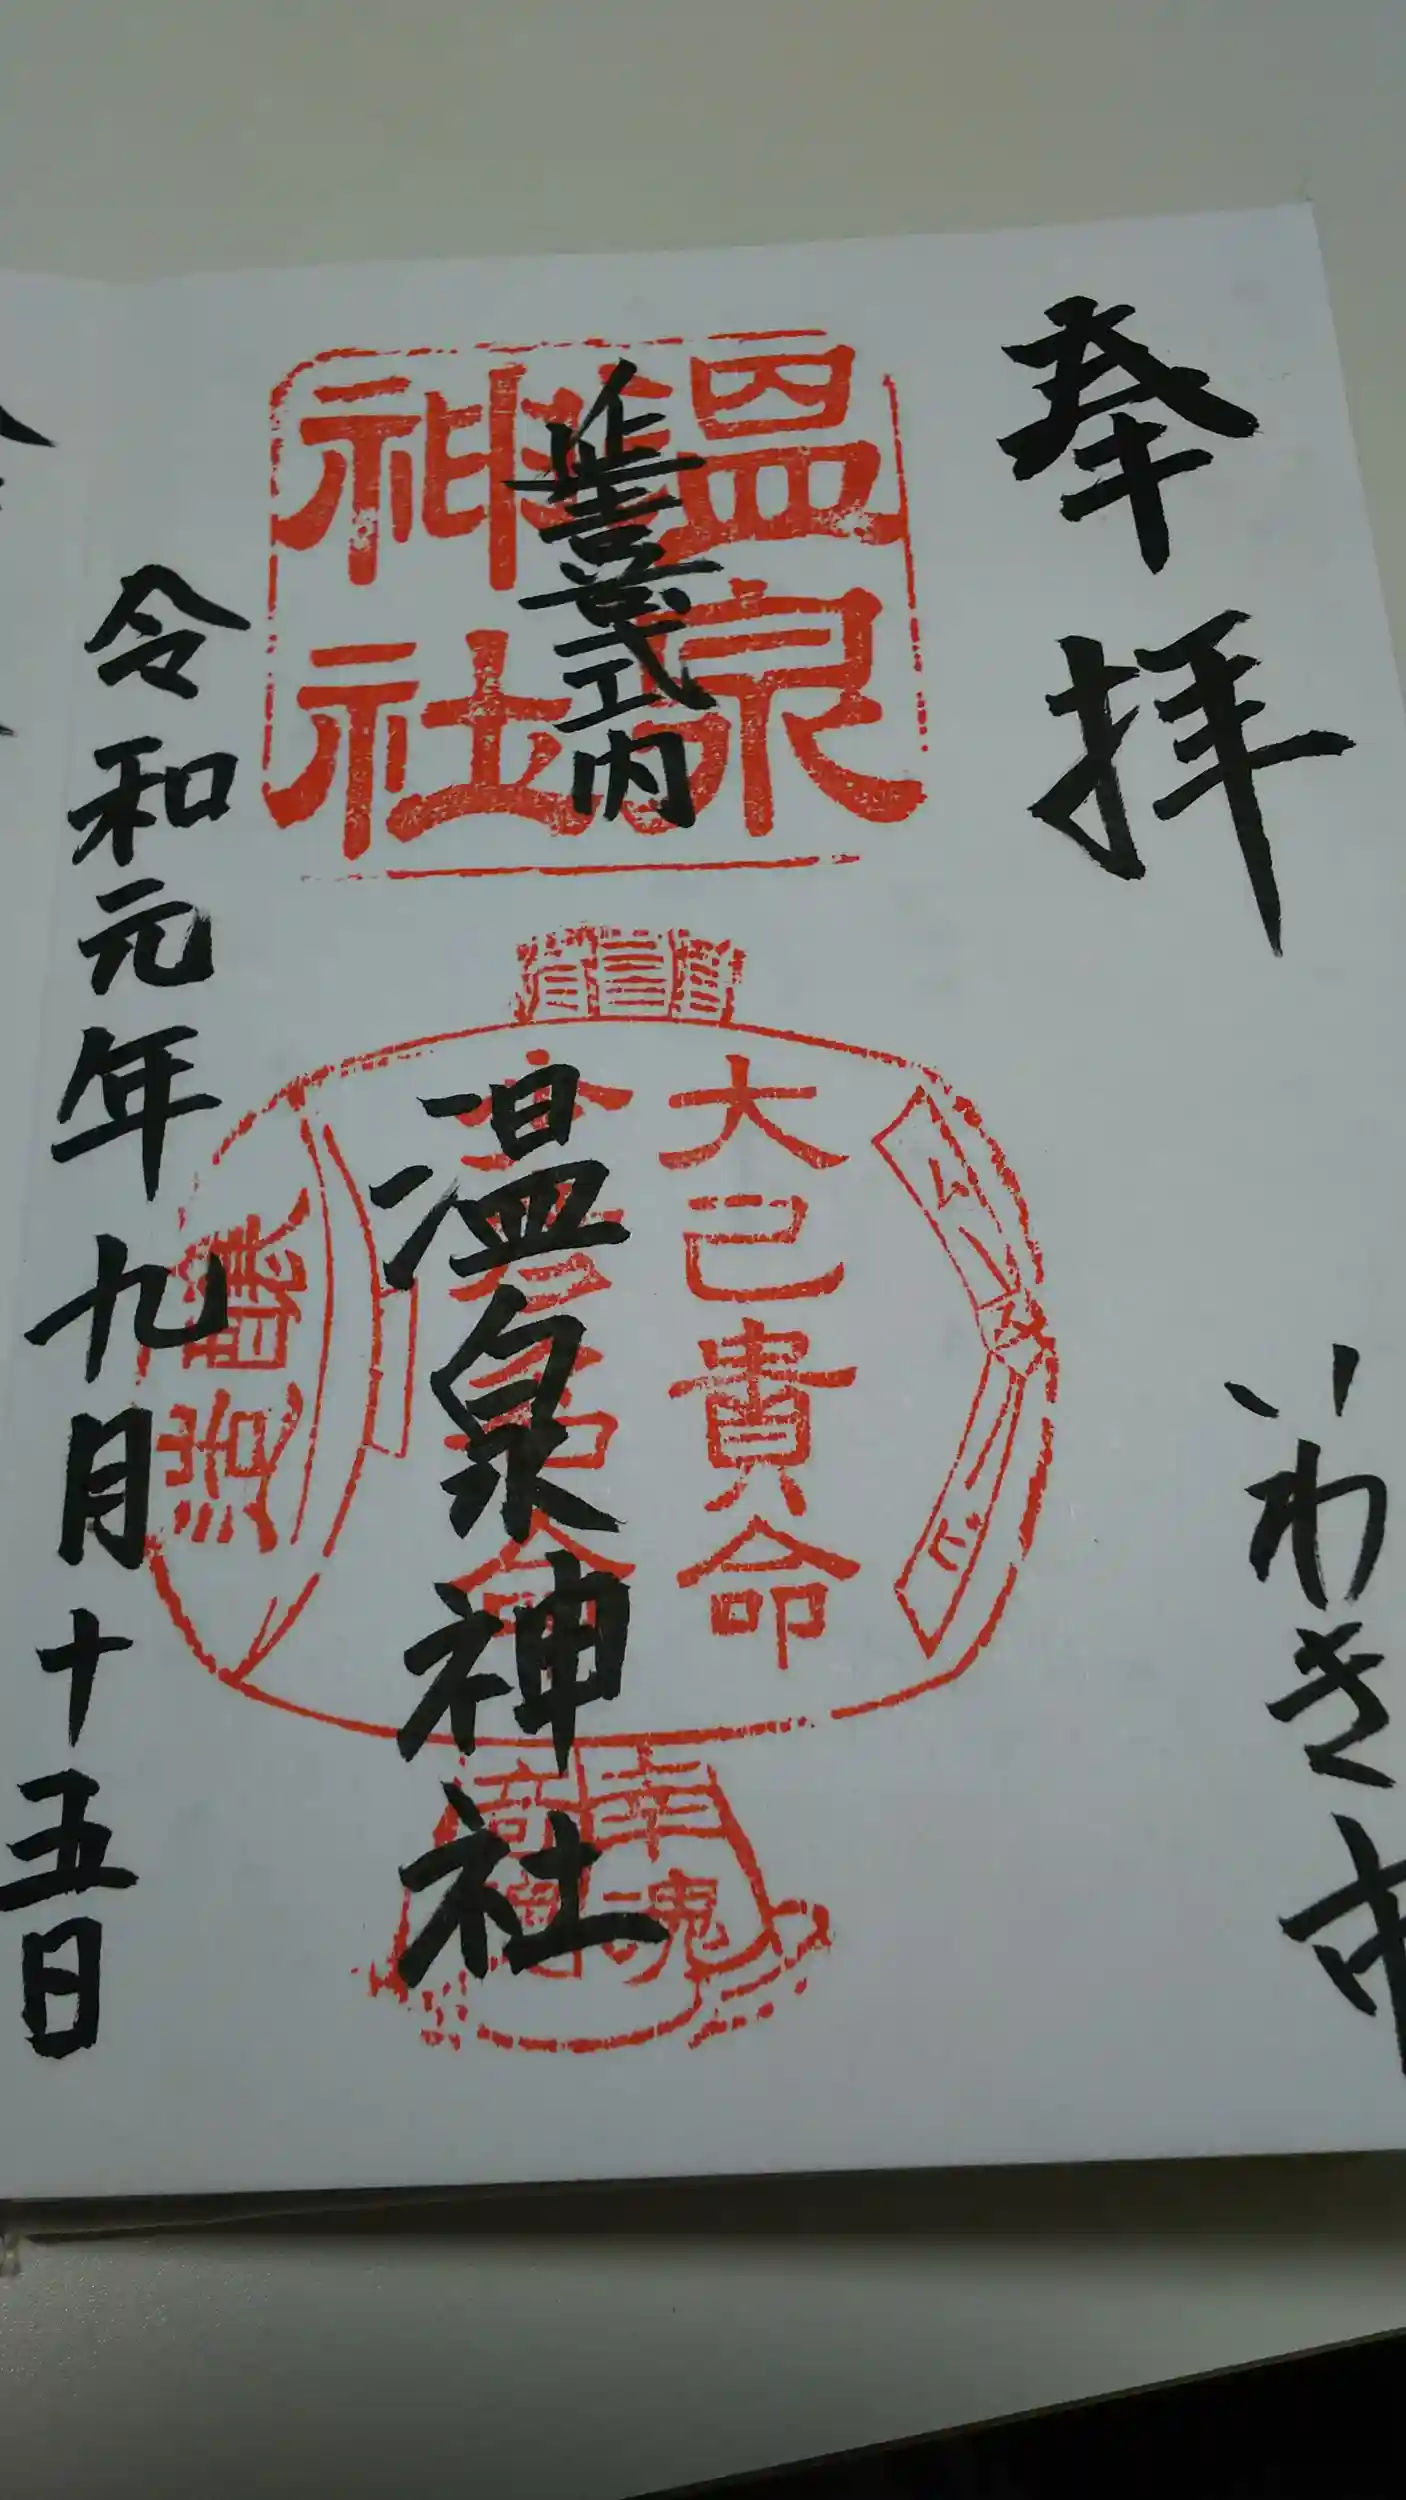 奉拝
いわき市
延喜式内
温泉神社
令和元年九月十五日
温泉
神社
大己貴命
幸魂